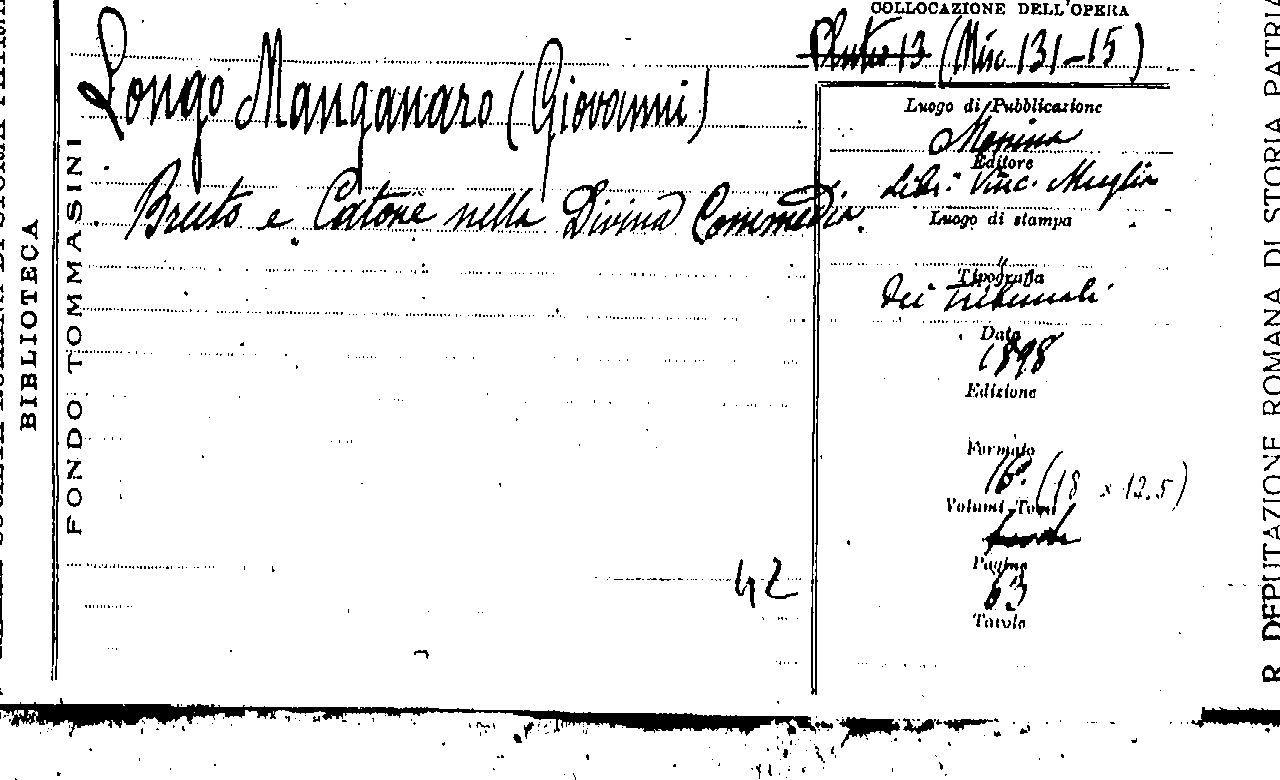 COLLOCAZIONE DELL'OPERA
Pluteo 13 (Misc 131-15)
Longo Manganaro (Giovanni)
Bruto e Catone nella Divina Commedia.
42
Luogo di Pubblicazione
Messina
Editore
Libr. Vinc. Muglia
Luogo di stampa
"
Tipografia
Dei Tribunali
Data
1898
Edizione
Formato
16° (18 x 12.5)
Volumi-Tomi
Pagine
63
Tavole
BIBLIOTECA
FONDO TOMMASINI
R. DEPUTAZIONE ROMANA DI STORIA PATRIA